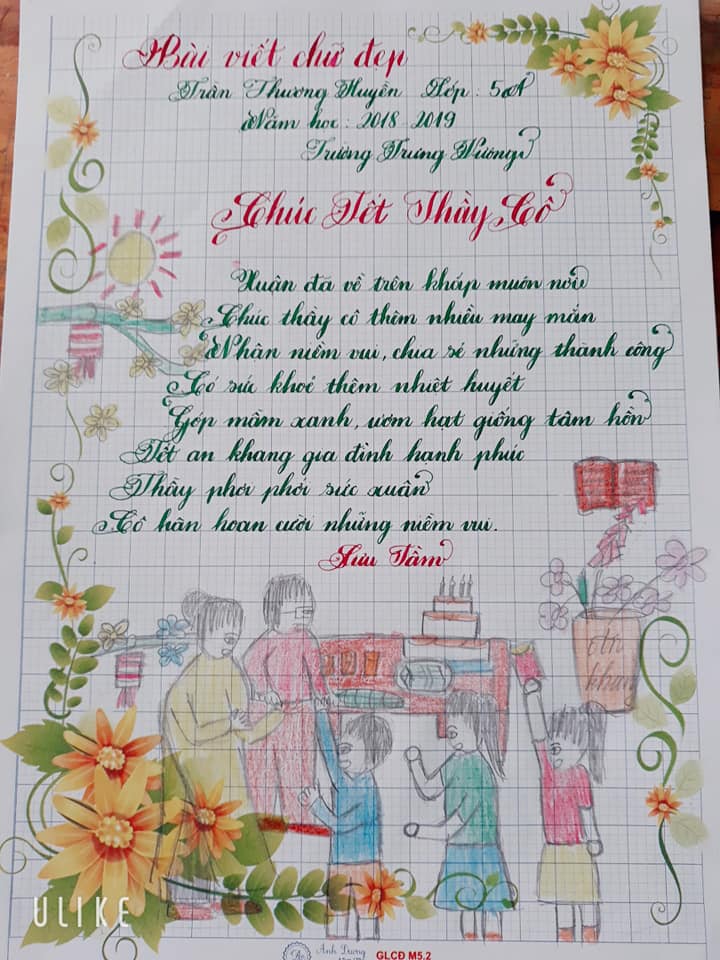 Bài viết chữ đẹp
Trần Thương Huyền Lớp : 5A
Năm học : 2018 2019
Trường Trưng Vương
Chúc Tết Thầy Cô
Xuân đã về trên khắp muôn nơi
Chúc thầy cô thêm nhiều may mắn
Nhân niềm vui, chia sẻ những thành công
Có sức khoẻ thêm nhiệt huyết
Góp mầm xanh, ươm hạt giống tâm hồn
Tết an khang gia đình hạnh phúc
Thầy phơi phới sức xuân
Cô hân hoan cười những niềm vui.
Sưu Tầm
khang
ULIKE
Ánh Dương
GLCĐ M5.2